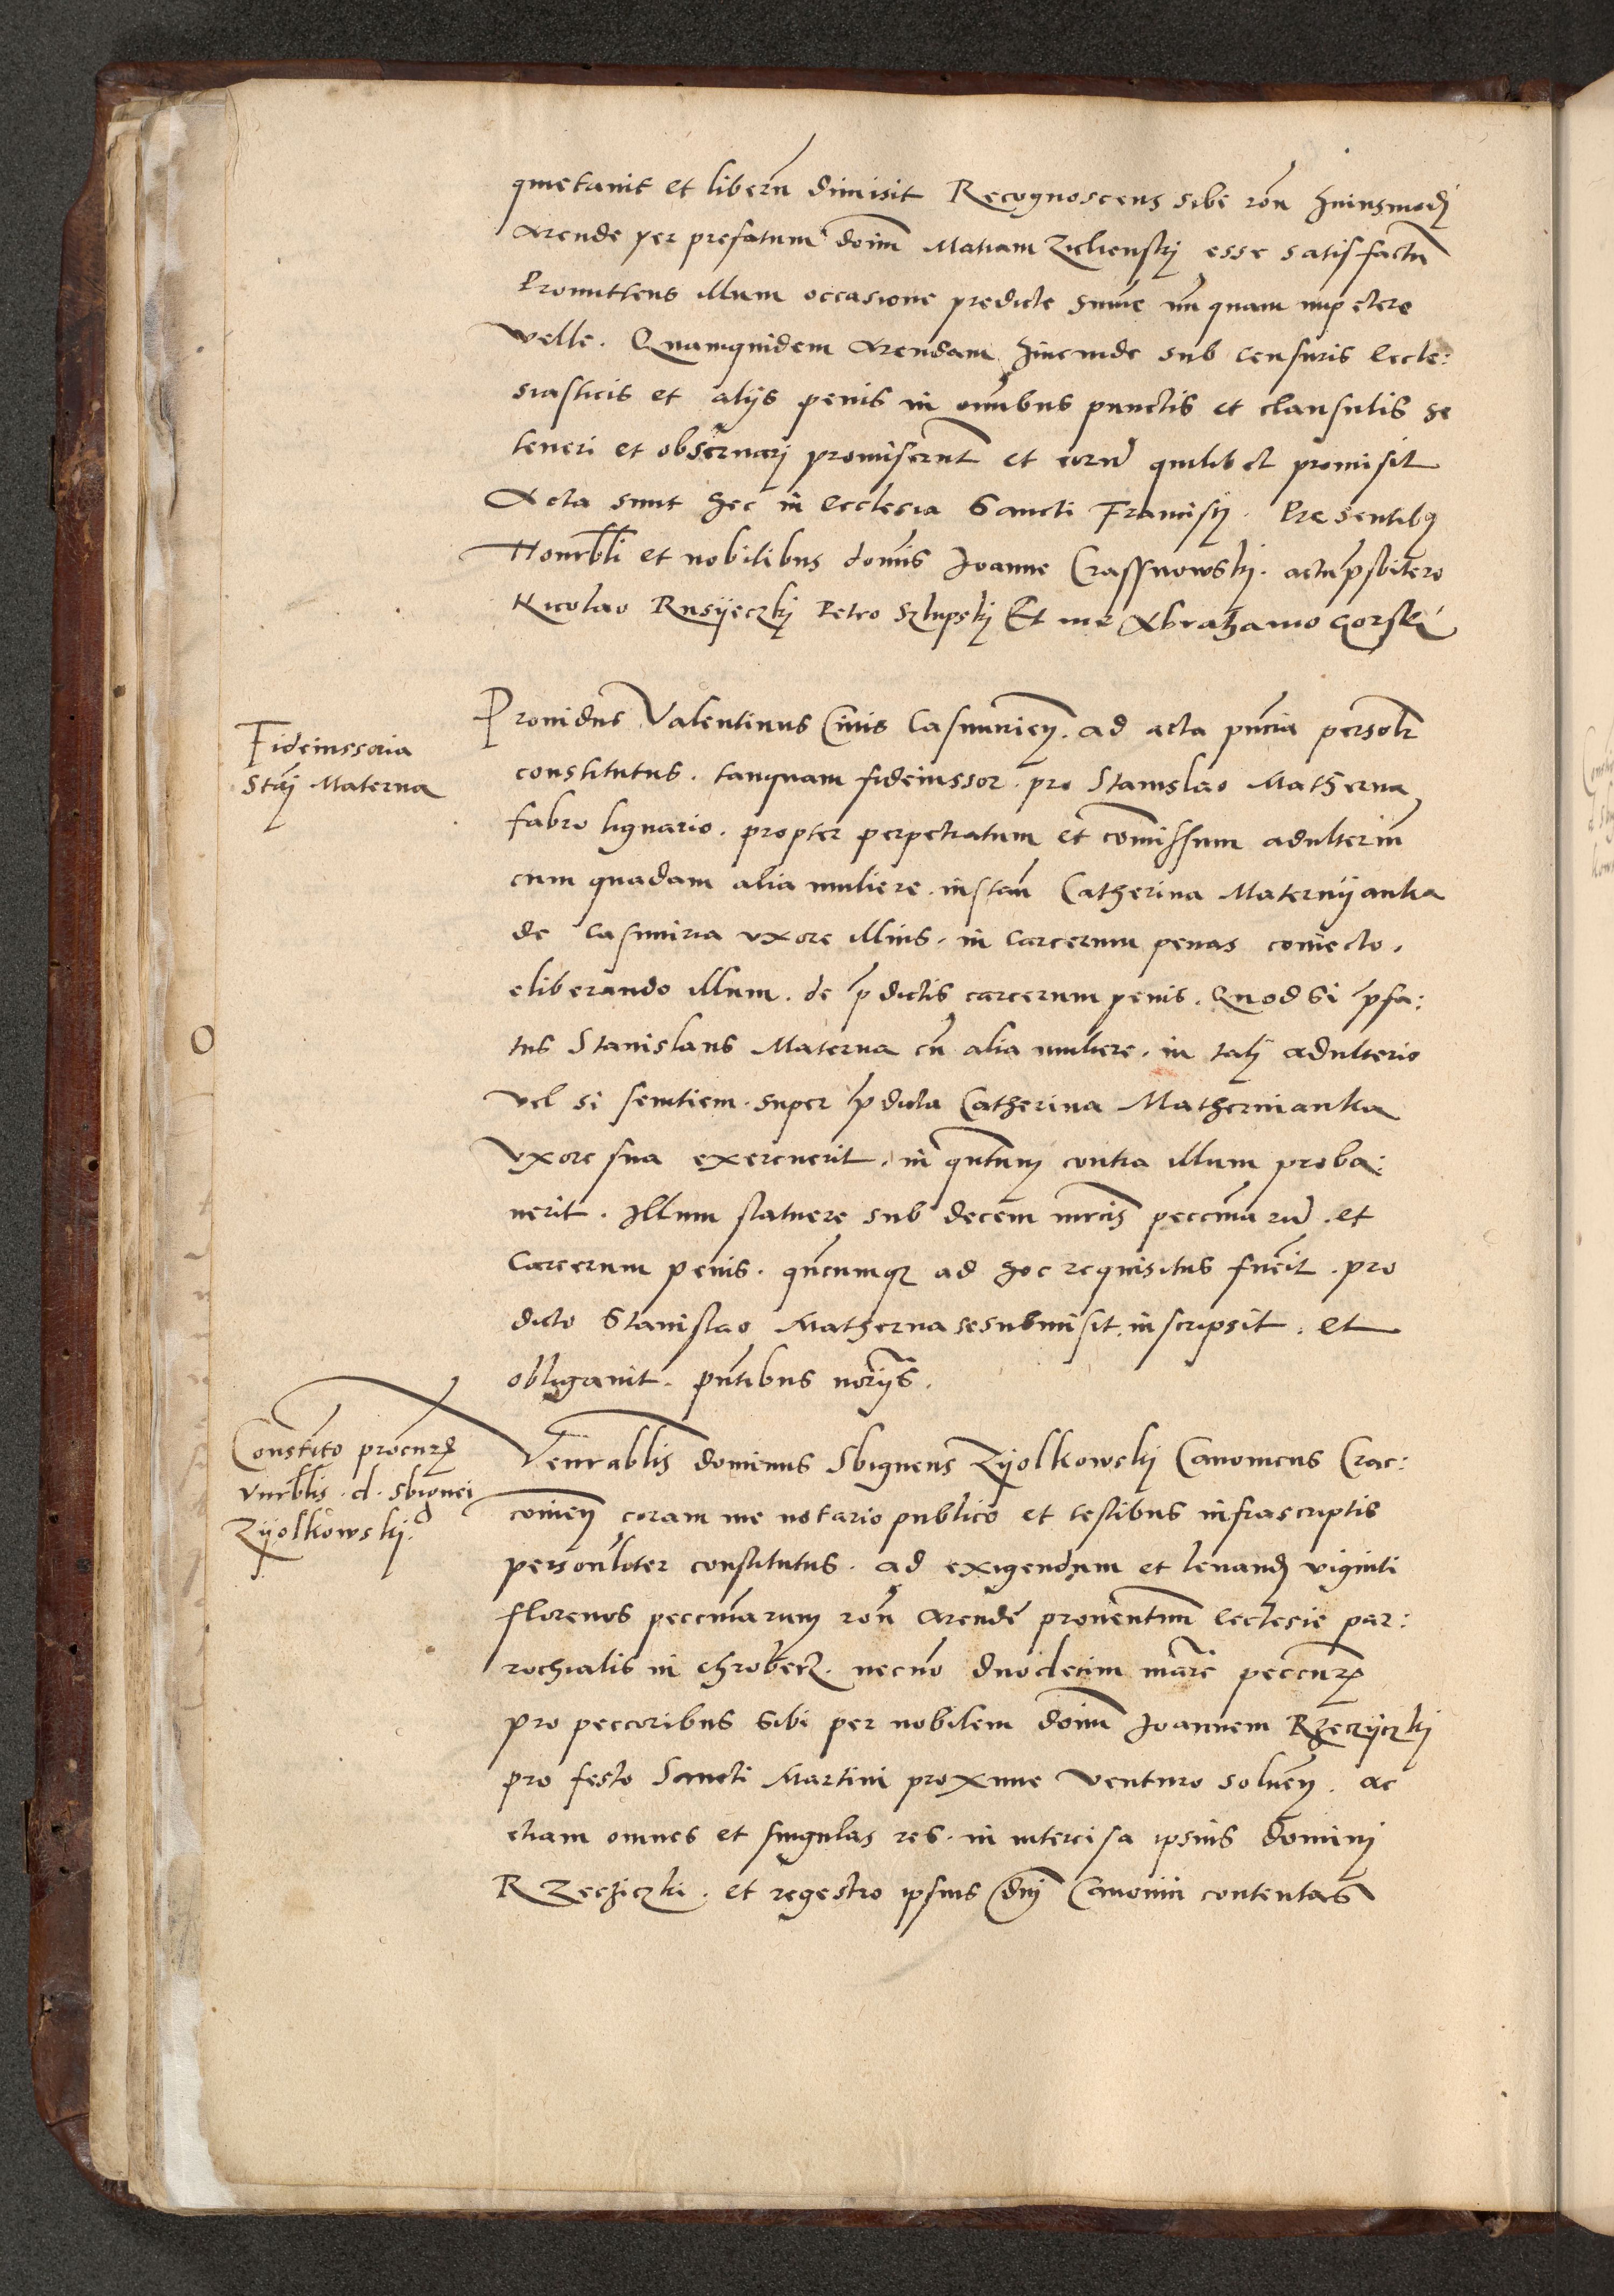 quietavit et liberu dimisit Recognoscens sibi ron huiusmodj
Arende per prefatum doim Matiam Zielienskj esse satisfactu
Promittens illum occasione predicte sume nu quam impetere
velle. Quamquidem Arendam hincinde sub censuris Eccle:
siasticis et alijs penis in omibus punctis et clausulis se
teneri et observarj promiserunt et eoru quilibet promisit
Acta sunt hec in Ecclesia Sancti Francisci. Presentibq
Honrbli et nobilibus domis Joanne Crassnowskj. actu psbitero
Nicolao Rusÿeczkj Petro Szlupskj Et me Abrahamo Gorski
Fideiussoria
Stāj Materna
Providus Valentinus Civis Casmirien. ad acta pncia personlr
constitutus. tanquam fideiussor. pro Stanislao Matherna
fabro lignario. propter perpetratum et comissum adulteriu
cum quadam alia muliere. instan Catherina Maternÿanka
de Casimiria uxore illius. in carcerum penas coniecto.
eliberando illum. de pdictis carcerum penis. Quod si pfa:
tus Stanislaus Materna cu alia muliere. in talj adulterio
vel si sevitiem. super pdicta Catherina Mathernianka
uxore sua exercuerit. in quntum contra illum proba:
verit. Illum statuere sub decem mrcis peccuniaru. et
Carcerum penis. quncumqz ad hoc requisitus fuerit. pro
dicto Stanislao Matherna se submisit. inscripsit. et
obligavit. pntibus norijs.
Constito procurd
vnrblis. d. Sbignei
Zÿolkowskj.
Venrablis dominus Sbigneus Zÿolkowskj Canonicus Crac:
covien coram me notario publico et testibus infrascriptis
personliter constitutus. ad exigendum et levand viginti
florenos peccuniarum ron Arende proventum Ecclesie par:
rochialis in Chroberz. necno duodecim marc peccur
pro peccoribus sibi per nobilem doim Joannem Rzeczÿczkj
pro festo Sancti Martini proxime venturo solven. ac
etiam omnes et singulas res. in intercisa ipsius dominj
Rzecziczki. et regestro ipsius dnj Canonici contentas